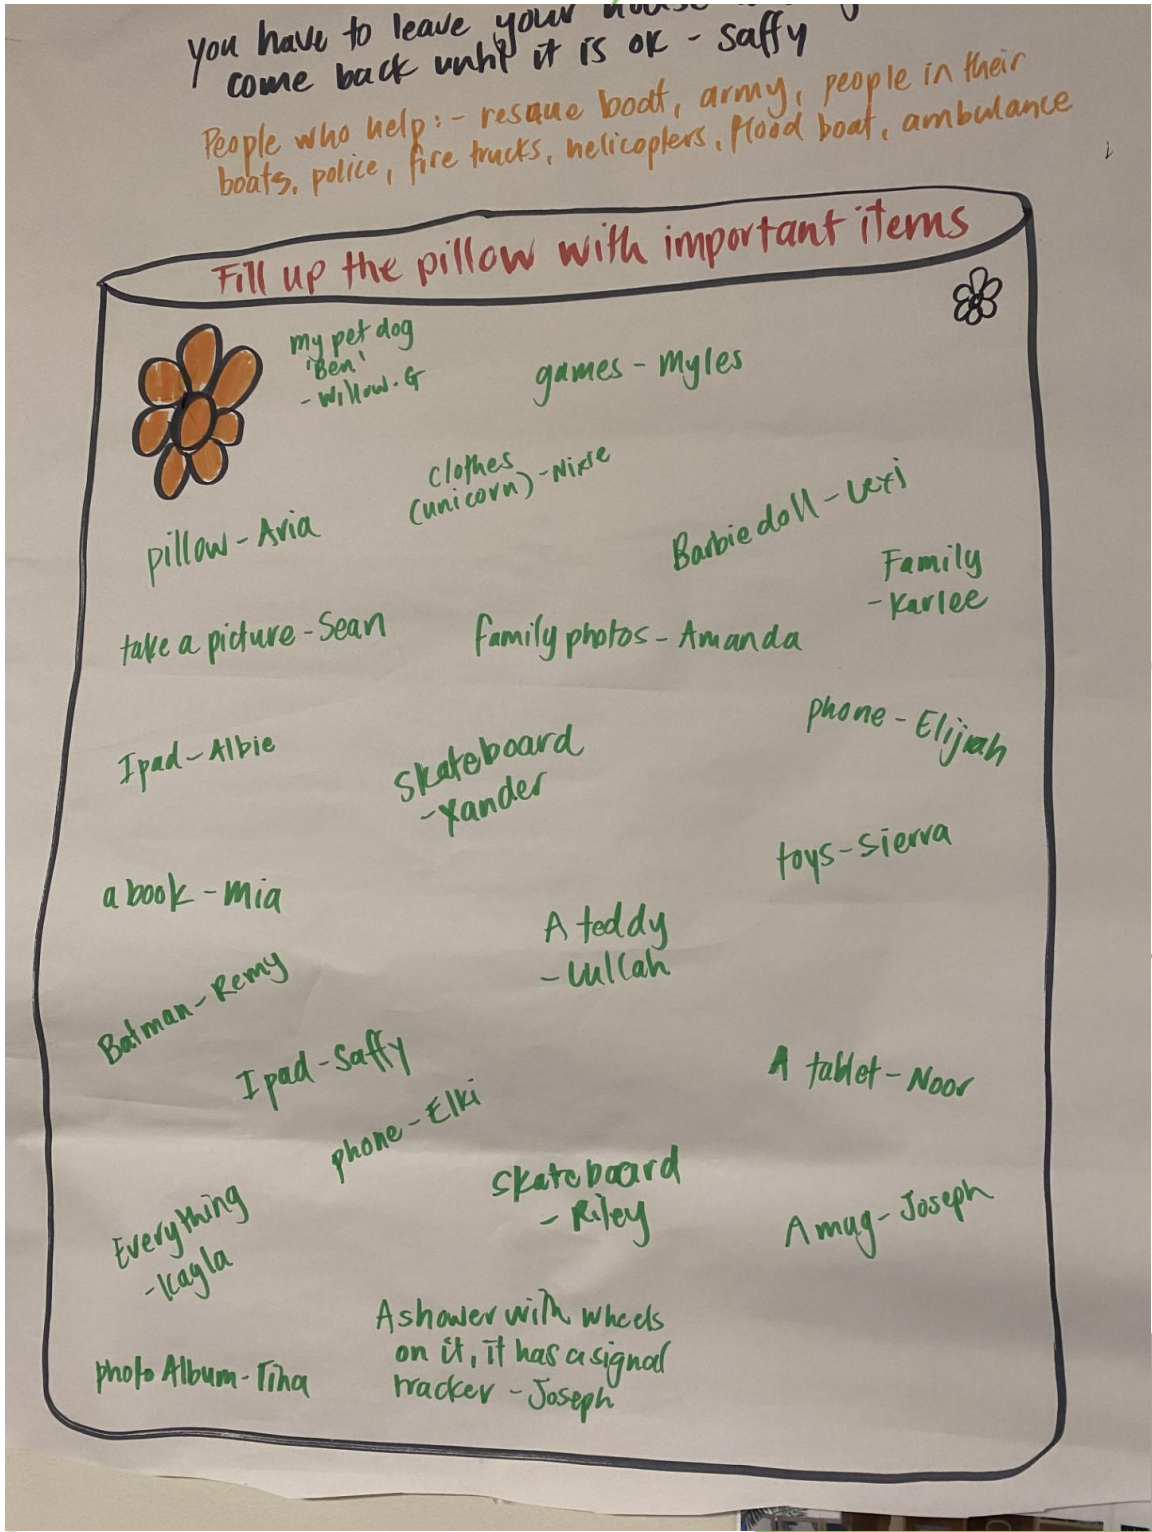 you have to leave your house
come back until it is ok - saffy
People who help:- resque boat, army, people in their
boats, police, fire trucks, helicopters, flood boat, ambulance
Fill up the pillow with important items
my pet dog
'Ben'
- Willow.G
games - Myles
clothes
(unicorn) - Nixie
pillow - Aria
Barbie doll - Lexi
Family
- Karlee
take a picture - Sean
family photos - Amanda
phone - Elijah
Ipad - Albie
Skateboard
- Xander
toys - Sierra
a book - Mia
A teddy
- Lullah
Batman - Remy
Ipad - Saffy
A tablet - Noor
phone - Elki
Skateboard
- Riley
A mug - Joseph
Everything
- Kayla
A shower with wheels
on it, it has a signal
tracker - Joseph
photo Album - Tina